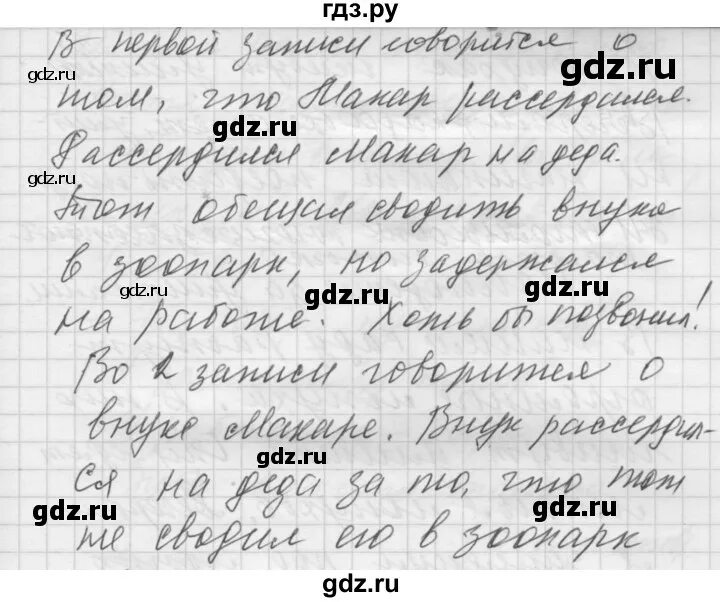 гдз.ру
В первой записи говорится о
том, что Макар рассердился.
Рассердился Макар на деда.
Тот обещал сводить внука
в зоопарк, но задержался
на работе. Хоть бы позвонил!
Во 2 записи говорится о
внуке Макаре. Внук рассердил-
ся на деда за то, что тот
не сводил его в зоопарк
gdz.ru
gdz.ru
gdz.ru
gdz.ru
gdz.ru
gdz.ru
gdz.ru
gdz.ru
gdz.ru
gdz.ru
gdz.ru
gdz.ru